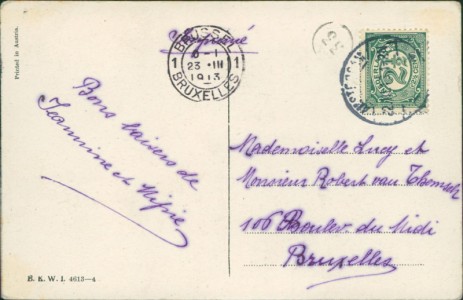 Printed in Austria.
BRUSSEL
6-1
1 23 III 1
1913
BRUXELLES
Bons baisers de
Jeannine et
Mademoiselle Lucy et
Monsieur Robert van
106 Boulev. du Midi
Bruxelles
B. K. W. I. 4613—4